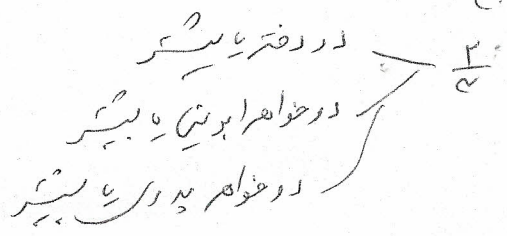 ۲/۳
دو دختر یا بیشتر
دو خواهر ابوینی یا بیشتر
دو خواهر پدری یا بیشتر